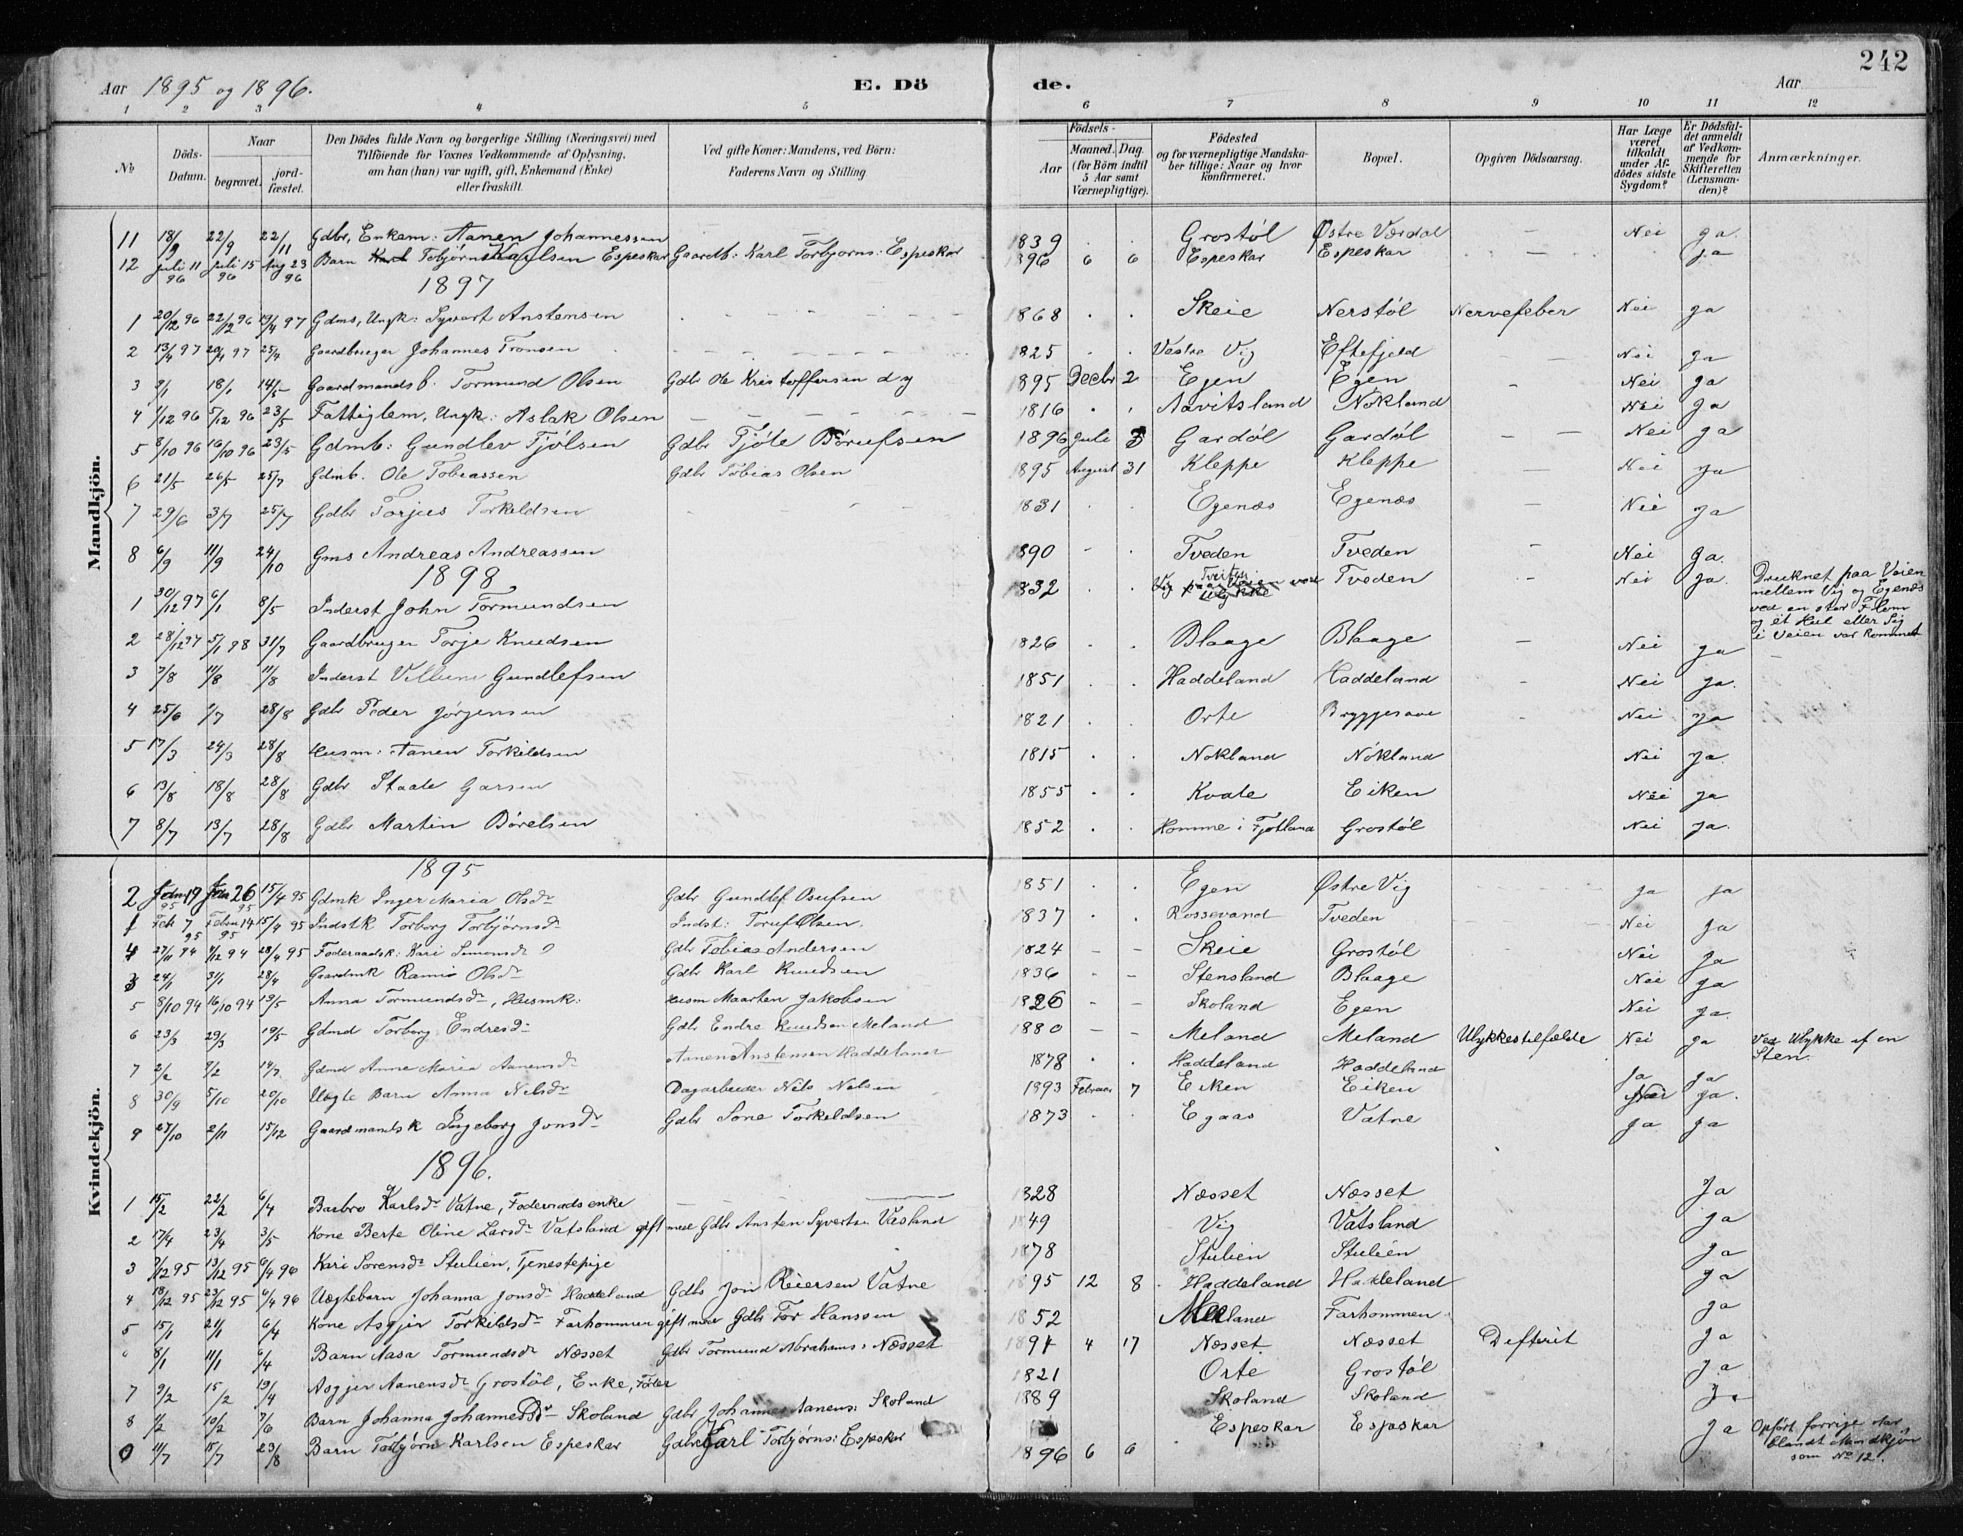 242
Aar 1895 og 1896. E. Dö de. Aar
1 2 3 4 5 6 7 8 9 10 11 12
№ Döds-Datum. Naar begravet. jord-fæstet. Den Dödes fulde Navn og borgerlige Stilling (Næringsvei) med Tilföiende for Voxnes Vedkommende af Oplysning, om han (hun) var ugift, gift, Enkemand (Enke) eller fraskilt. Ved gifte Koner: Mandens, ved Börn: Faderens Navn og Stilling. Födsels- Aar Maaned. Dag. (for Börn indtil 5 Aar samt Værnepligtige). Födested og for værnepligtige Mandskaber tillige: Naar og hvor konfirmeret. Bopæl. Opgiven Dödsaarsag. Har Læge været tilkaldt under Afdödes sidste Sygdom? Er Dödsfaldet anmeldt af Vedkommende for Skifteretten (Lensmanden)? Anmærkninger.
Mandkjön.
11 18/9 22/9 22/11 Gdbr, Enkem: Aanen Johannessen 1839 Grostöl Østre Værdal Nei ja.
12 Juli 11 96 Juli 15 96 Aug 23 96 Barn Karl Tobjørn Karlsen Espeskar Gaardb: Karl Torbjorns: Espeskar 1896 6 6 Espeskar Espeskar ja
1897
1 20/12 96 22/12 96 19/4 97 Gdms, Ungk: Syvert Anstensen 1868 Skeie Nerstøl Nervefeber Nei ja
2 13/4 97 20/4 97 25/4 Gaardbruger Johannes Tronsen 1825 Vestre Vig Eftefjeld Nei ja
3 9/1 18/1 14/5 Gaardmandsb. Tormund Olsen Gdbr Ole Kristoffersen d y 1895 Decbr 2 Egen Egen Nei ja
4 1/12 96 5/12 96 23/5 Fattiglem, Ungk: Aslak Olsen 1816 Aavitsland Nökland Nei ja
5 8/10 96 16/10 96 23/5 Gdmb: Gundlev Tjölsen Gdbr Tjöle Börufsen 1896 Juli 3 Gardöl Gardöl Nei ja
6 21/5 26/5 25/7 Gdmb. Ole Tobiassen Gdbr Tobias Olsen 1895 August 31 Kleppe Kleppe Nei ja
7 29/6 3/7 25/7 Gdbr Torjus Torkeldsen 1831 Egenæs Egenæs Nei ja
8 6/9 11/9 24/10 Gms Andreas Andreassen 1890 Tveden Tveden Nei ja.
1898
1 30/12 97 6/1 8/5 Inderst John Tormundsen 1832 Tveden Nei ja. Druknet paa Veien mellem Vig og Egenæs ved en stor Flom og et Hul eller Sig i Veien var kommet
2 28/12 97 5/1 98 31/7 Gaardbruger Torje Knudsen 1826 Blaage Blaage Nei ja
3 7/8 11/8 11/8 Inderst Gundlefsen 1851 Haddeland Haddeland Nei ja.
4 25/6 1/7 28/8 Gdbr Peder Jørgensen 1821 Orte Bryggesaae Nei ja
5 17/3 24/3 28/8 Husm: Aanen Torkildsen 1815 Nökland Nökland Nei ja.
6 13/8 18/8 28/8 Gdbr Staale Garsen 1855 Kvale Eiken Nei ja
7 8/7 13/7 28/8 Gdbr Martin Börelsen 1852 Homme i Fjotland Grostöl Nei ja.
Kvindekjön.
1895
2 19 95 26 95 15/4 95 Gdmk Inger Maria Olsdr Gdbr Gundlef Osufsen 1851 Egen Østre Vig ja ja
1 Feb 7 95 Febr 14 95 15/4 95 Indstk Torborg Torbjørnsdr Indst: Toruf Olsen. 1837 Rossevand Tveden Nei ja
4 27/11 94 4/12 94 28/4 95 Føderaadsk: Kari Simonsdr Gdbr Tobias Andersen 1824 Skeie Grostöl Nei ja
3 24/1 31/1 28/4 Gaardmk Olsdr Gdbr Karl Knudsen 1836 Stensland Blaage Nei ja
5 8/10 94 16/10 94 19/5 Anna Tormundsdr, Husmk: Husm Maarten Jakobsen 1826 Skoland Egen Nei ja.
6 23/3 29/3 19/5 Gdmd Torborg Endresdr Gdbr Endre Knudsen Meland 1880 Meland Meland Ulykkestilfælde Nei ja Ved Ulykke af en Sten.
7 2/2 9/2 14/7 Gdmd Anne Maria Aanensdr Aanen Anstensen Haddeland 1878 Haddeland Haddeland ja ja
8 30/9 5/10 20/10 Uægte Barn Anna Nilsdr Dagarbeider Nils Nilsen 1893 Februar 7 Eiken Eiken ja.
9 27/10 2/11 15/12 Gaardmandsk Ingeborg Jonsdr Gdbr Sone Torkeldsen 1873 Egaas Vatne ja ja
1896.
1 15/2 22/2 6/4 Barbro Karlsdr Vatne, Føderaadsenke 1828 Næsset Næsset Ja
2 17/4 23/4 3/5 Kone Berte Oline Larsdr Vatsland gift med Gdbr Ansten Syvertsen Vasland 1849 Vig Vatsland ja
3 7/12 95 13/12 95 6/4 96 Kari Sorensdr Stulien, Tjenestepige 1878 Stulien Stulien ja
4 18/12 95 23/12 95 6/4 96 Uægtebarn Johanna Jonsdr Haddeland Gdbr Jon Reiersen Vatne 1895 12 8 Haddeland Haddeland ja
5 15/1 21/1 6/4 Kone Asgjer Torkildsdr Farhommen gift med Gdbr Tor Hanssen 1852 Farhommen ja
8/1 11/1 6/4 Barn Aasa Tormundsdr Næsset Gdbr Tormund Abrahams: Næsset 1894 4 17 Næsset Næsset Difterit ja
7 9/2 15/2 19/4 Asgjer Aanensdr Grostöl, Enke, 1821 Orte Grostöl ja
8 1/2 10/2 7/6 Barn Johanna Johannesdr Skoland Gdbr Johannes Aanens: Skoland 1889 Skoland Skoland Ja
9 11/7 15/7 23/8 Barn Torbjørn Karlsen Espeskar Gdbr Karl Torbjørns: Espeskar 1896 6 6 Espeskar Espeskar ja Opført forrige Aar blandt Mandkjøn som No 12.